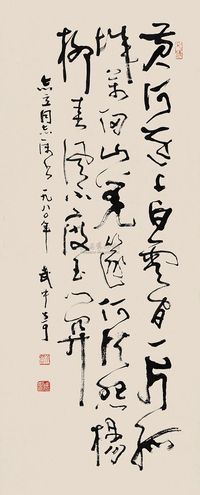 黄河远上白雲间一片孤
城萬仞山羌笛何须怨楊
柳春风不度玉门关
同志 一九八〇年 武中奇